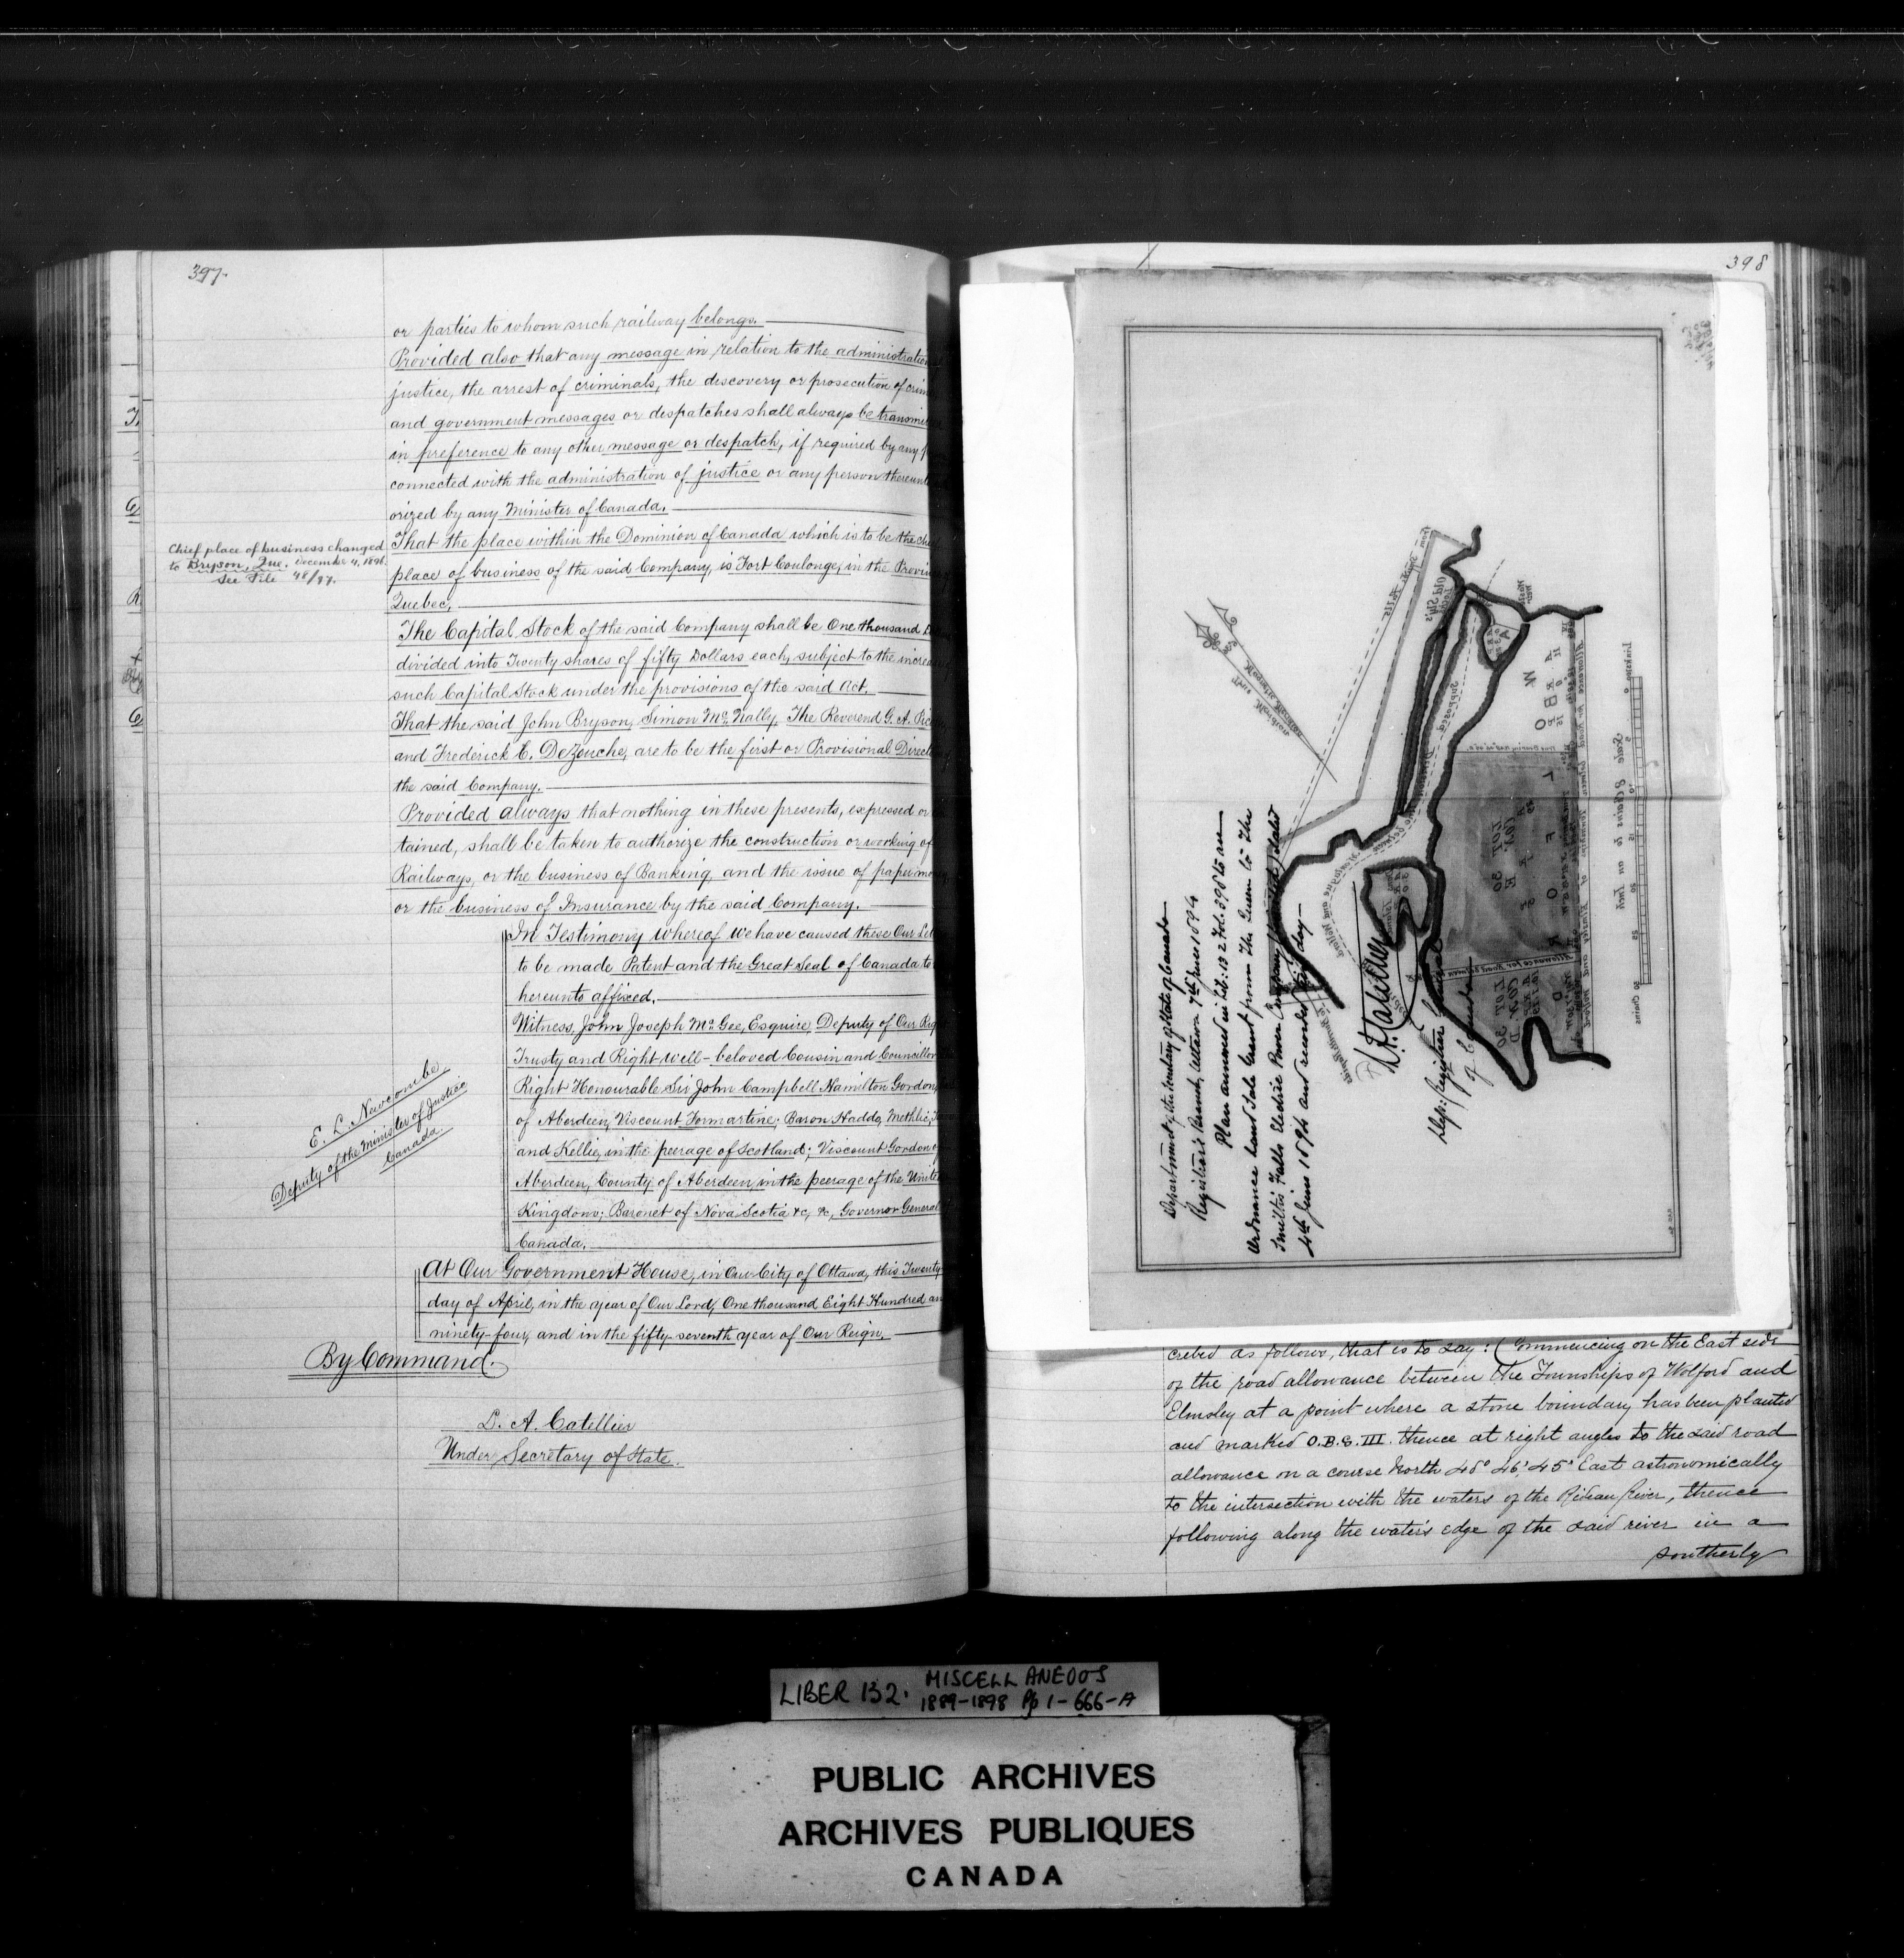 397.
or parties to whom such railway belongs.
Provided also that any message in relation to the administration
justice, the arrest of criminals, the discovery or prosecution of crim
and government messages or despatches shall always be transmit
in preference to any other message or despatch, if required by any
connected with the administration of justice or any person thereunt
orized by any Minister of Canada.
That the place within the Dominion of Canada which is to be the chi
place of business of the said Company, is Fort Coulonge, in the Provin
Quebec,
Chief place of business changed
to Bryson, Que. December 4, 1896.
See File 48/97.
The Capital Stock of the said Company shall be One thousand
divided into Twenty shares of fifty Dollars each, subject to the increa
such Capital Stock under the provisions of the said Act.
That the said John Bryson, Simon Mc Nally, The Reverend G. A.
and Frederick C. DeZouche, are to be the first or Provisional Direct
the said Company.
Provided always that nothing in these presents, expressed or
tained, shall be taken to authorize the construction or working of
Railways, or the business of Banking, and the issue of paper mo
or the business of Insurance by the said Company.
In Testimony whereof We have caused these Our Let
to be made Patent and the Great Seal of Canada to
hereunto affixed.
Witness, John Joseph Mc Gee, Esquire, Deputy of Our Righ
Trusty and Right Well-beloved Cousin and Councillor
Right Honourable Sir John Campbell Hamilton Gordon,
of Aberdeen; Viscount Formartine; Baron Haddo, Methlic,
and Kellie, in the peerage of Scotland; Viscount Gordon of
Aberdeen, County of Aberdeen, in the peerage of the Unite
Kingdom; Baronet of Nova Scotia &c, &c, Governor General
Canada.
E. L. Newcombe
Deputy of the Minister of Justice
Canada.
At Our Government House, in Our City of Ottawa, this Twenty
day of April, in the year of Our Lord, One thousand Eight Hundred an
ninety-four, and in the fifty-seventh year of Our Reign.
By Command.
L. A. Catellier
Under Secretary of State.
398
Department of the Secretary of State of Canada
Registrar's Branch, Ottawa 7th June 1894
Plan annexed in Lib: 132 Fol: 398 to an
Ordnance Land Sale Grant from The Queen to The
Smith's Falls Electric Power Company dated
4th June 1894 and recorded day
L. A. Catellier
Dep: Registrar General
of Canada
Scale 8 Chains to an Inch
LOT 30
LOT 30
WOLFORD
cribed as follows, that is to say: Commencing on the East side
of the road allowance between the Townships of Wolford and
Elmsley at a point where a stone boundary has been planted
and marked O.B.S. III. thence at right angles to the said road
allowance on a course North 48° 46' 45" East astronomically
to the intersection with the waters of the Rideau River, thence
following along the water's edge of the said river in a
southerly
LIBER 132. MISCELLANEOUS
1889-1898 Pp 1-666-A
PUBLIC ARCHIVES
ARCHIVES PUBLIQUES
CANADA